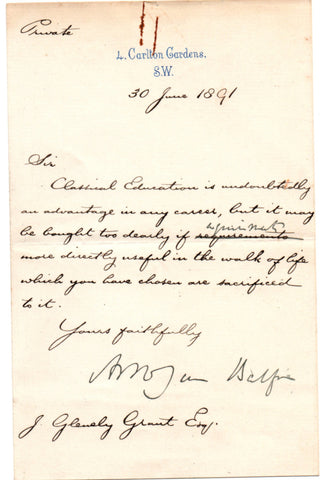 Private
4. Carlton Gardens.
S.W.
30 June 1891
Sir
Classical Education is undoubtedly
an advantage in any career, but it may
be bought too dearly if acquirements requirements
more directly useful in the walk of life
which you have chosen are sacrificed
to it.
Yours faithfully
Arthur James Balfour
J Glenely Grant Esq.